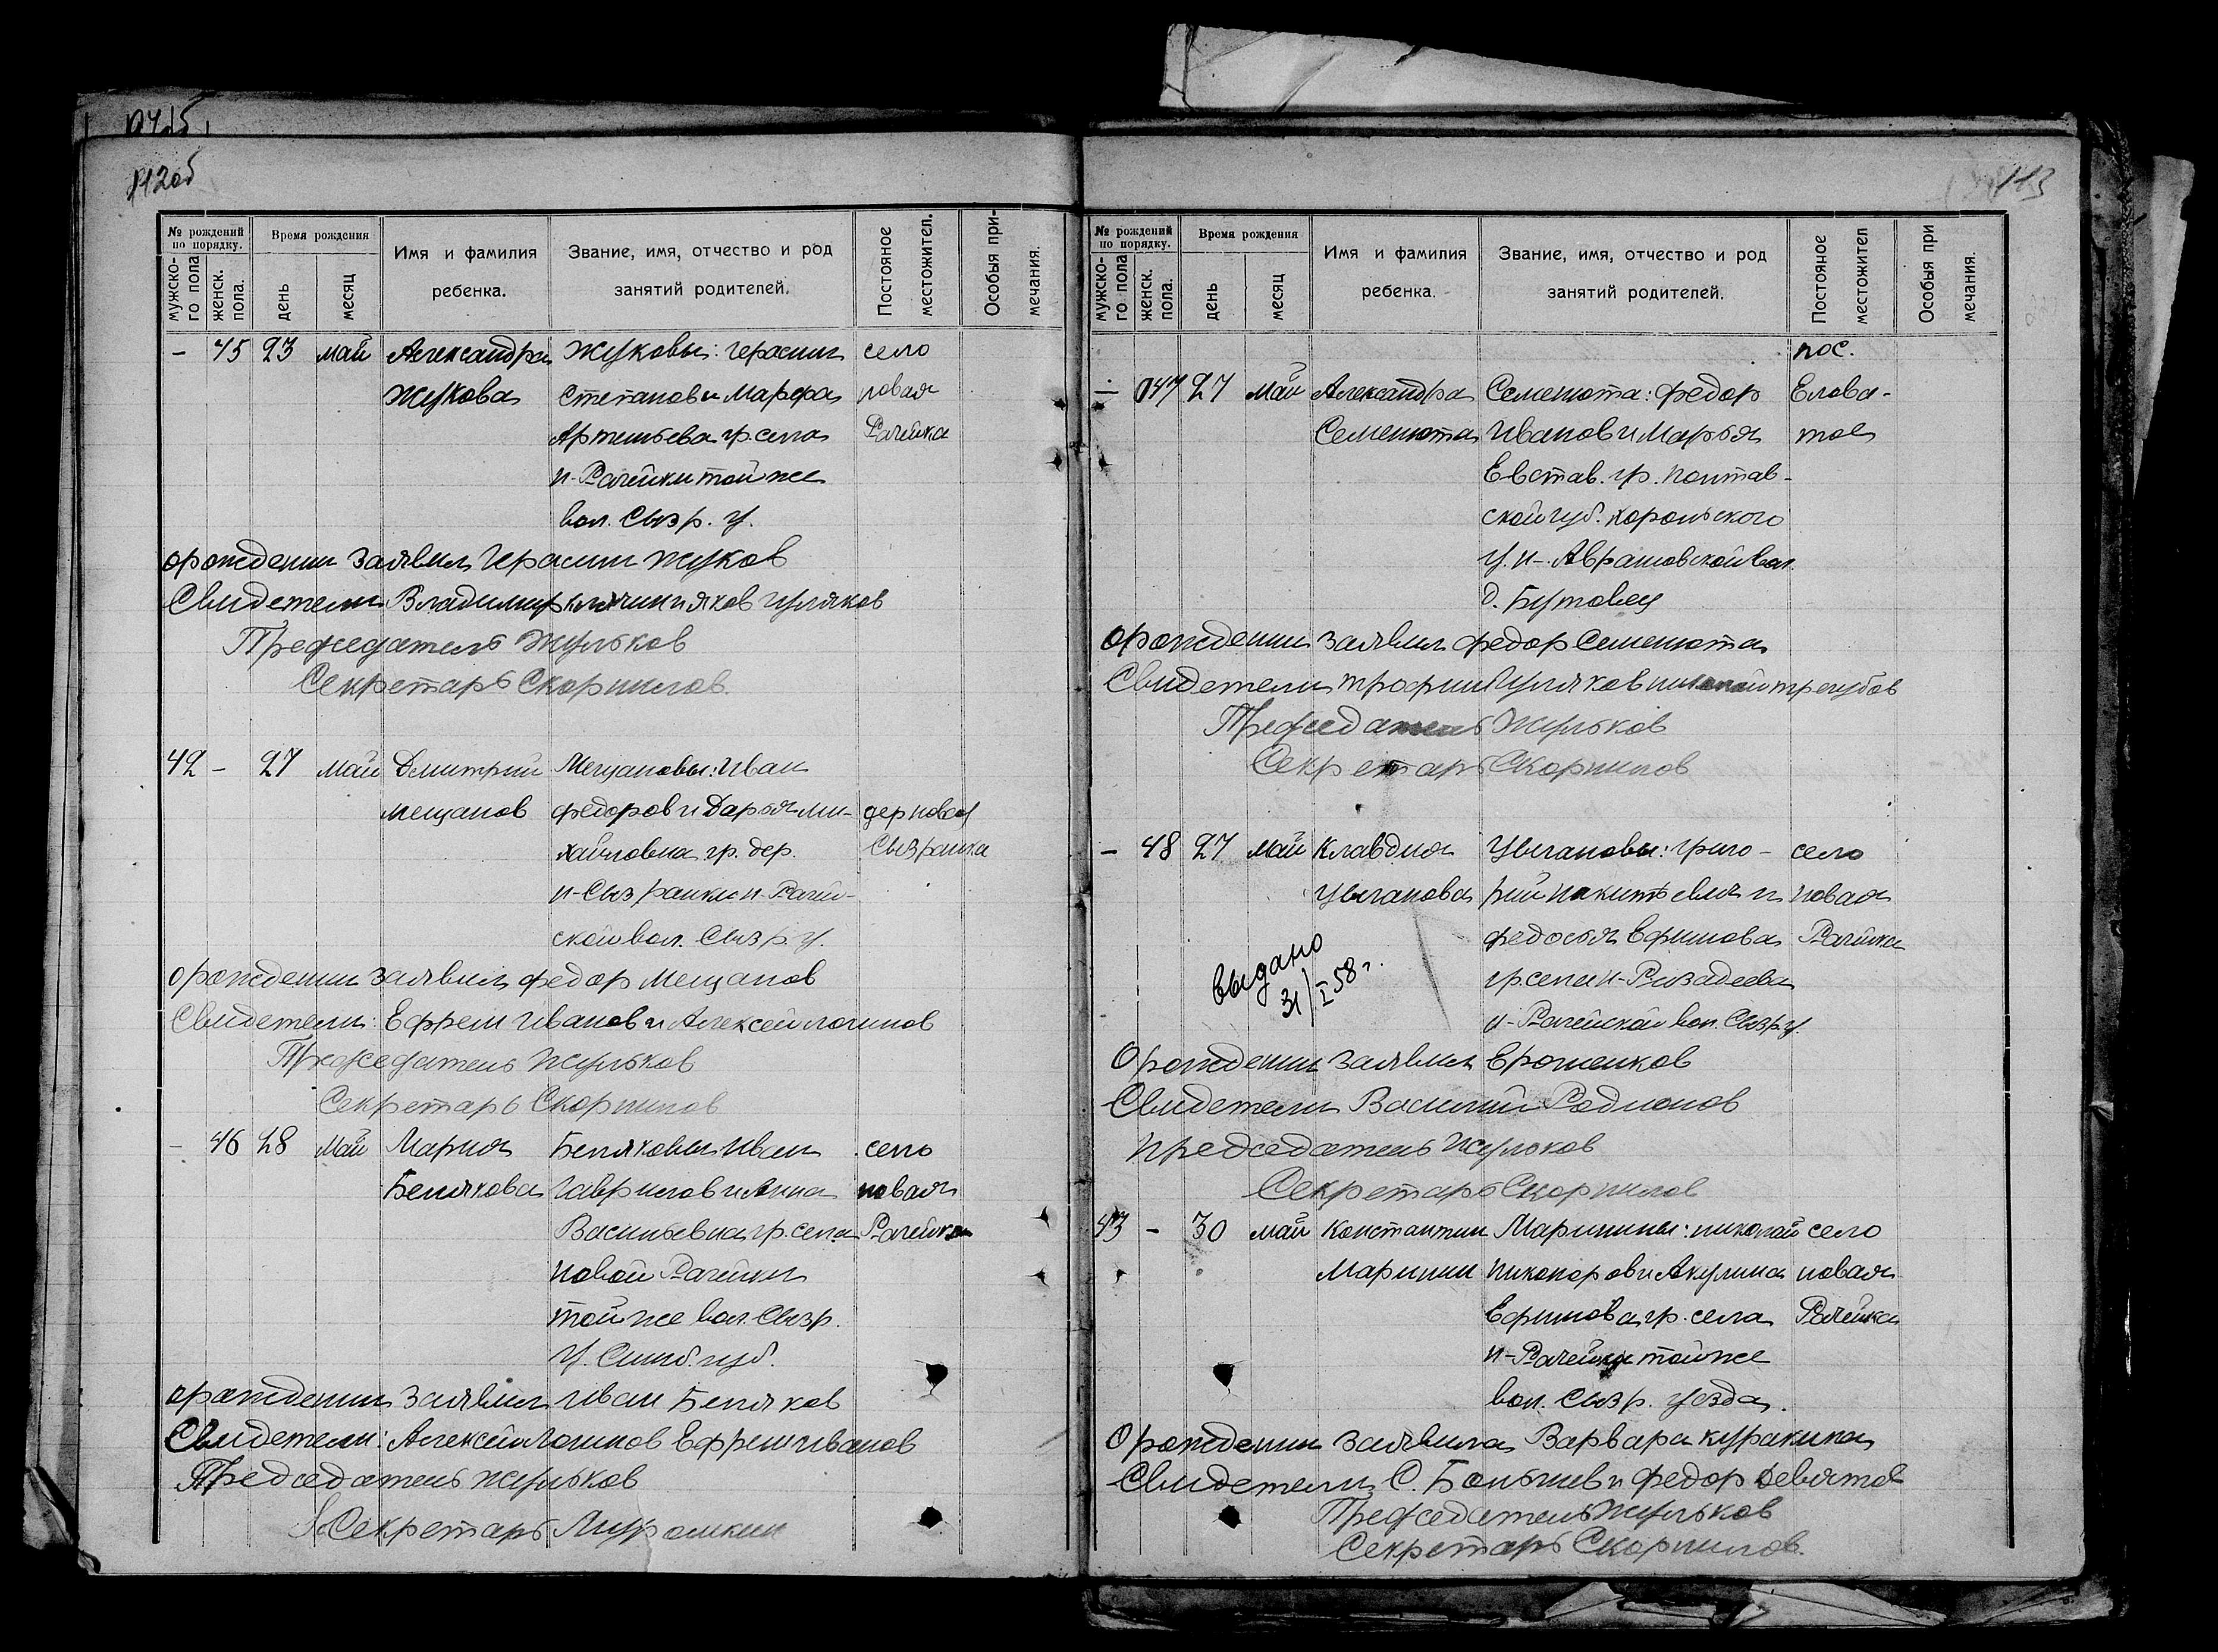 112об
№ рождений по порядку.
Время рождения
Имя и фамилия ребенка.
Звание, имя, отчество и род занятий родителей.
Постояное местожител.
Особыя примечания.
мужского пола
женск. пола.
день
месяц
- 45 23 май Александра Жуковы: Герасим село
Жукова Степанов и Марфа новая
Артемьева гр. села Рачейка
н-Рачейки той же
вол. Сызр. у.
о рождении заявил Герасим Жуков
Свидетели Владимир Гуляков
Председатель Жульков
Секретарь Скорпилов
42 - 27 май Дмитрий Мещановы: Иван
мещанов федоров и Дарья Ми- дер новая
хайловна гр. дер. Сызранка
н-Сызранки н-Рачей-
ской вол. Сызр. у.
о рождении заявил федор Мещанов
Свидетели: Ефрем Иванов и Алексей логинов
Председатель Жульков
Секретарь Скорпилов
- 46 28 май Мария Беляковы Иван село
Белякова Гаврилов и Анна новая
Васильевна гр. села Рачейка
Новой Рачейки
той же вол. Сызр.
у. Симб. губ.
о рождении заявил Иван Беляков
Свидетели: Алексей логинов Ефрем Иванов
Председатель Жульков
Секретарь
113
№ рождений по порядку.
Время рождения
Имя и фамилия ребенка.
Звание, имя, отчество и род занятий родителей.
Постояное местожител
Особыя при мечания.
мужского пола
женск. пола.
день
месяц
пос.
- 47 27 Май Александра Семенюта: федор Елова-
Семенюта Иванов и Марья тое
Евстав. гр. Полтав-
ской губ. хорольского
у. н-Аврамовской вол.
д. Бутовец
о рождении заявил федор Семенюта
Свидетели Трофим Гуляков николай трегубов
Председатель Жульков
Секретарь Скорпилов
- 48 27 май Клавдия Цыгановы: григо- село
Цыганова рий Никитьевич и Новая
федосья Ефимова Рачейка
гр. села н-Ризадеева
н-Рачейской вол. Сызр. у.
выдано
31/I 58 г.
О рождении заявил Ерошенков
Свидетели Василий Родионов
Председатель Жульков
Секретарь Скорпилов
43 - 30 май Константин Маринины: николай село
Маринин Никоноров и Акулина новая
Ефимова гр. села Рачейка
н-Рачейки той же
вол. Сызр. уезда.
О рождении заявила Варвара куракина
Свидетели С. и федор Девятов
Председатель Жульков
Секретарь Скорпилов.